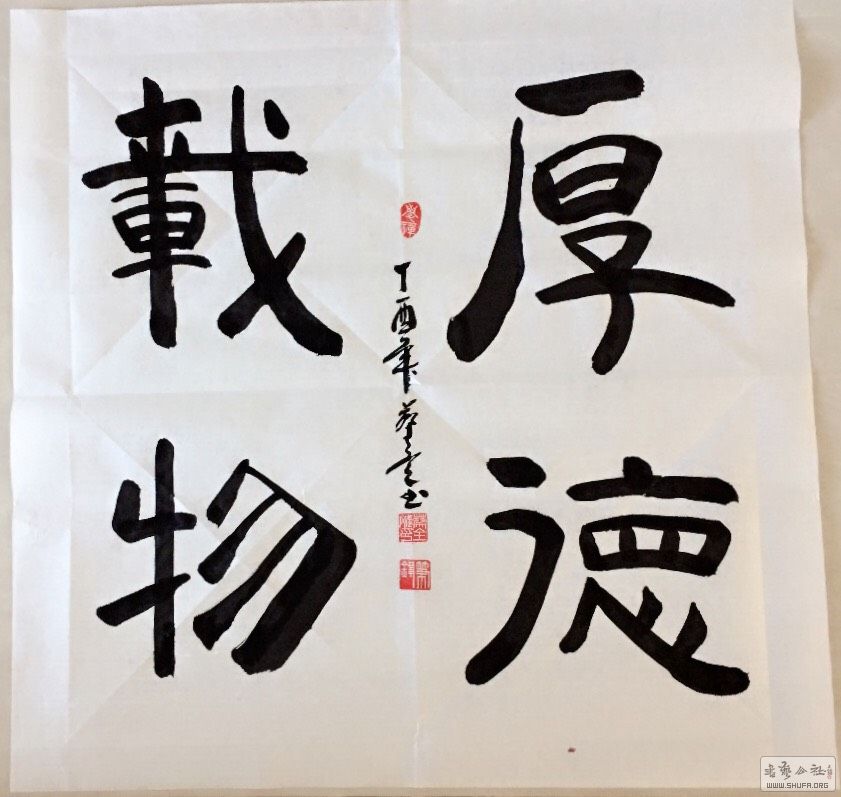 厚德
載物
丁酉年
書
書藝公社
WWW.SHUFA.ORG